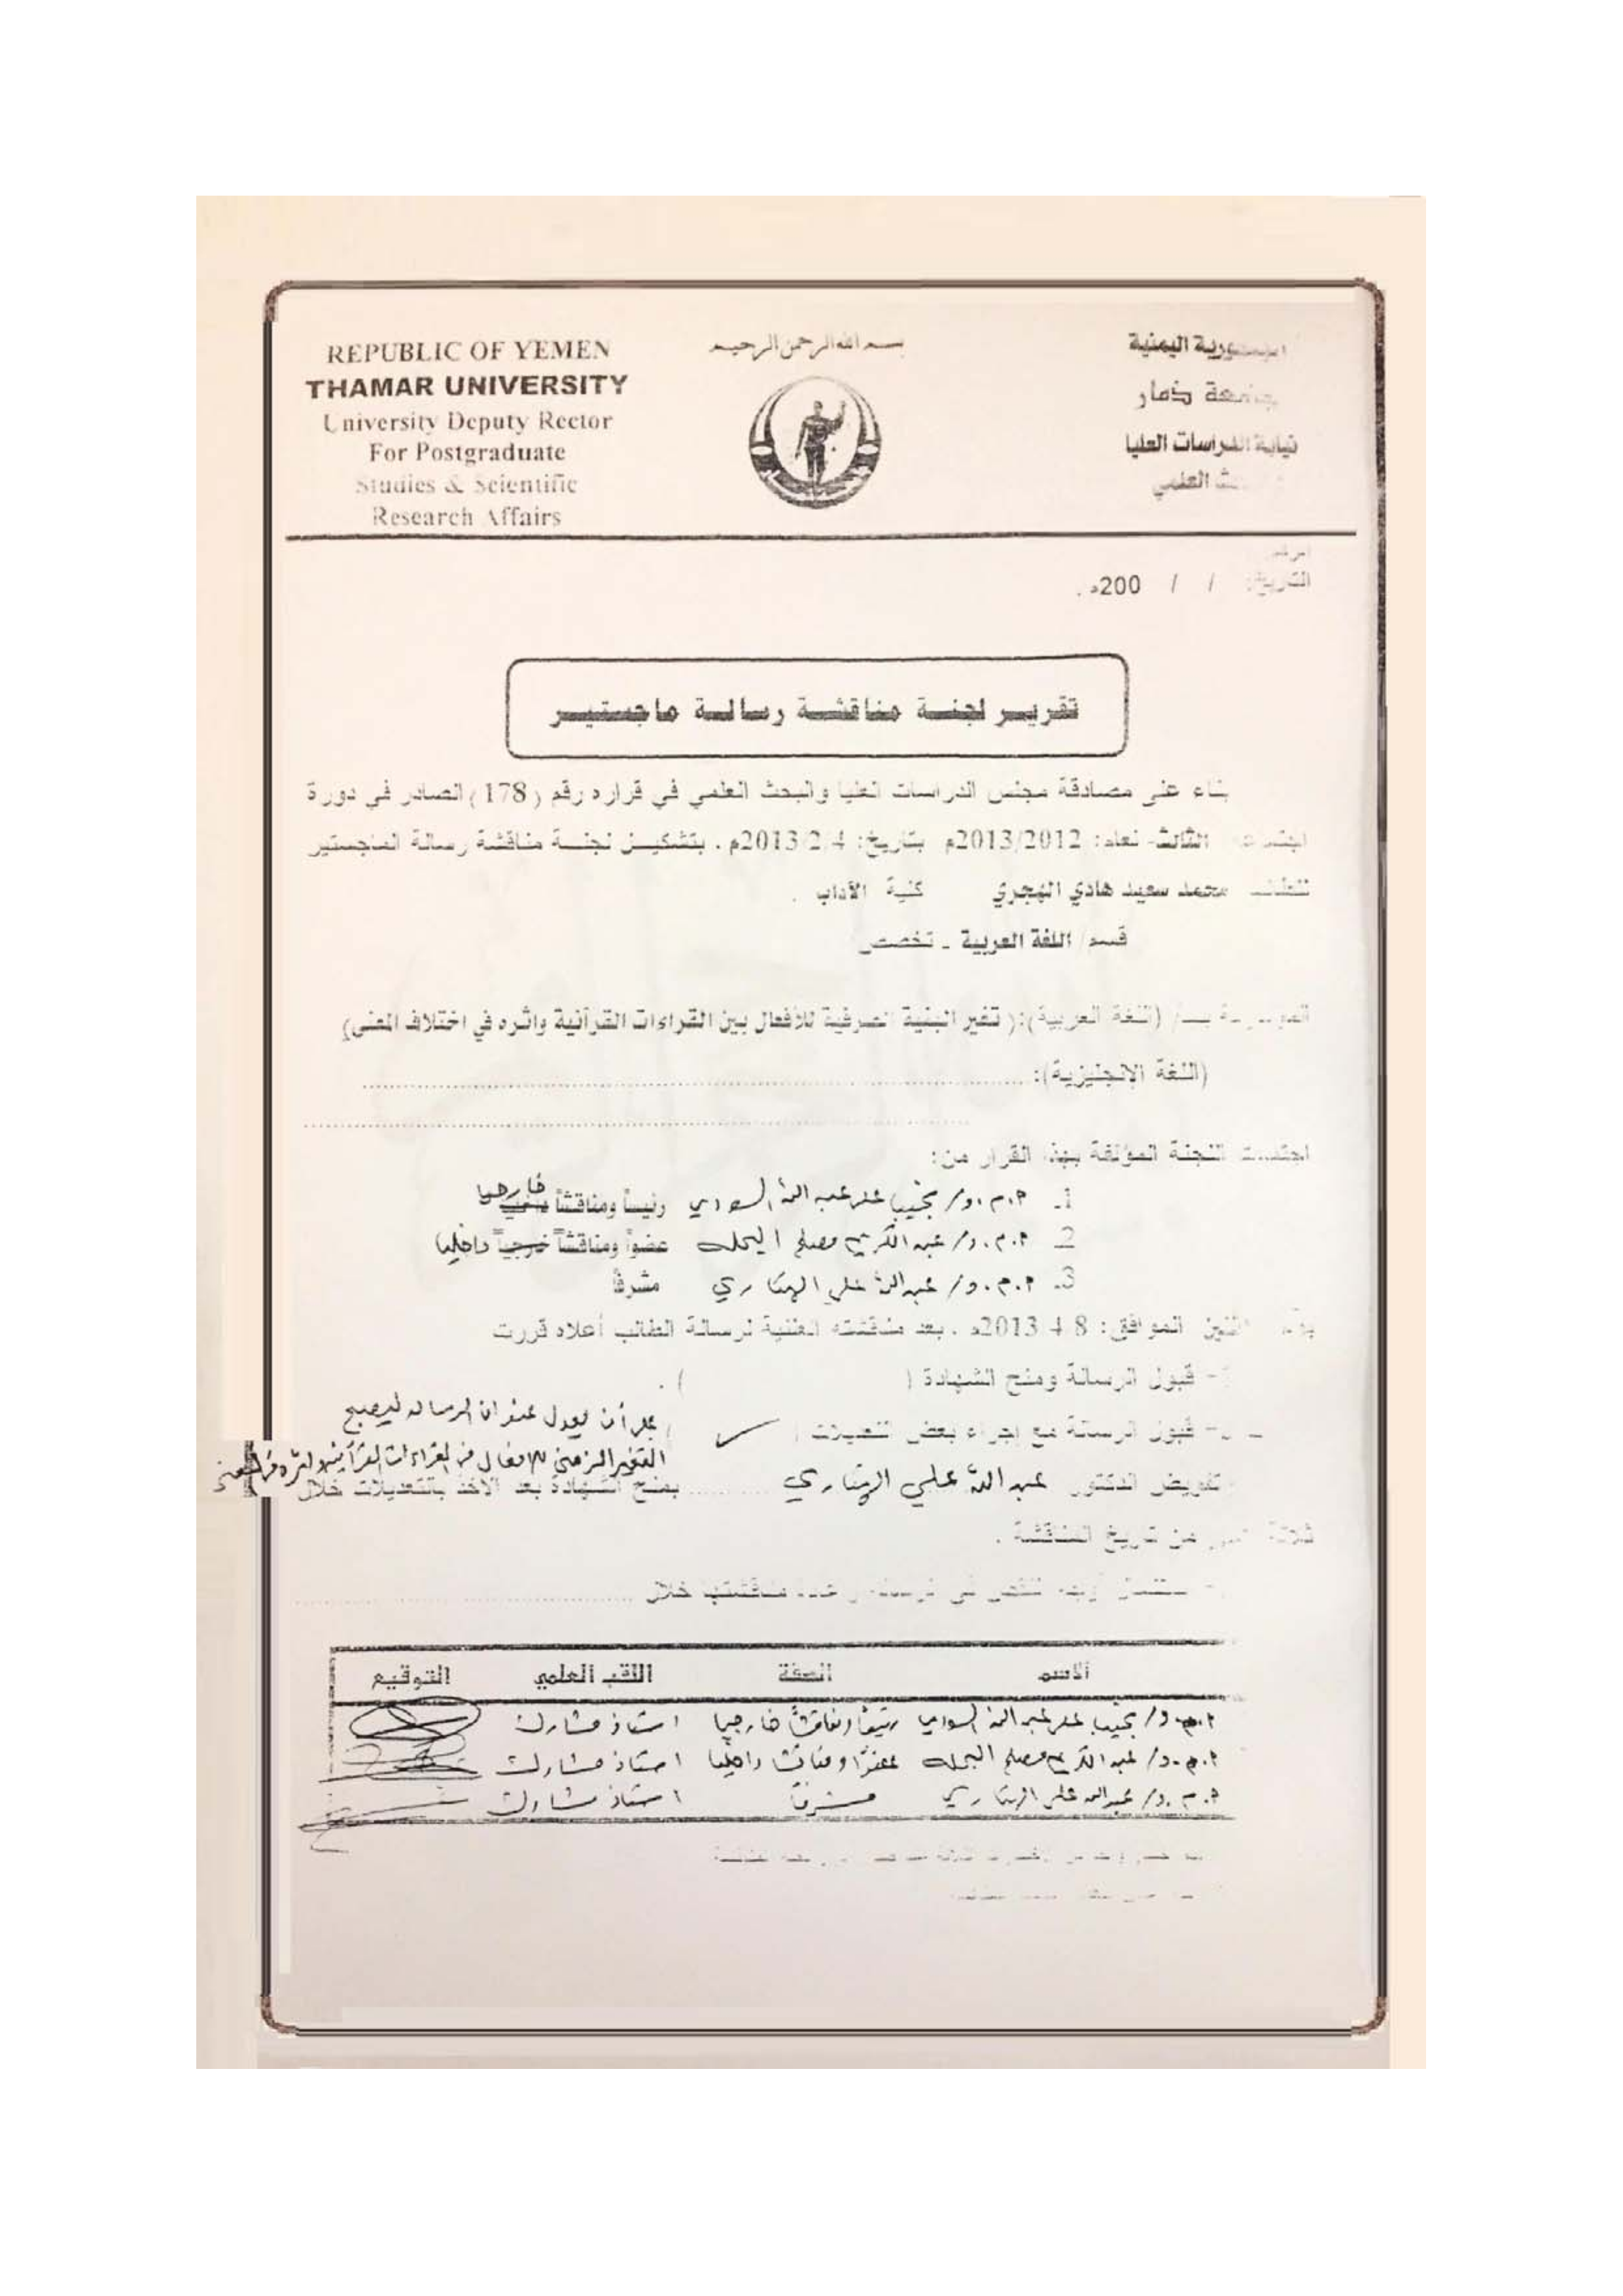 REPUBLIC OF YEMEN
THAMAR UNIVERSITY
University Deputy Rector
For Postgraduate
Studies & Scientific
Research Affairs
بسم الله الرحمن الرحيم
الجمهورية اليمنية
جامعة ذمار
نيابة الدراسات العليا
العلمي
التاريخ: / / 200م .
تقرير لجنة مناقشة رسالة ماجستير
بناء على مصادقة مجلس الدراسات العليا والبحث العلمي في قراره رقم (178) الصادر في دورة
الثالث- لعام: 2013/2012م بتاريخ: 2013/2/4م . بتشكيل لجنة مناقشة رسالة الماجستير
محمد سعيد هادي الهجري كلية الآداب .
قسم/ اللغة العربية - تخصص
(اللغة العربية):( تغير البنية الصرفية للأفعال بين القراءات القرآنية واثره في اختلاف المعنى)
(اللغة الإنجليزية):
اجتمعت اللجنة المؤلفة بهذا القرار من:
1- ا.م.د/ نجيب علي عبدالله السودي رئيساً ومناقشاً خارجيا
2- ا.م.د/ عبدالكريم مصلح البحلة عضواً ومناقشاً خارجياً داخليا
3- ا.م.د/ عبدالله علي الهتاري مشرفاً
الموافق: 8 4 2013م . بعد مناقشته العلنية لرسالة الطالب أعلاه قررت
- قبول الرسالة ومنح الشهادة ( ) .
- قبول الرسالة مع إجراء بعض التعديلات ( ✓ ) على أن يعدل عنوان الرسالة ليصبح
التغير الزمني للأفعال في القراءات القرآنية واثره في المعنى
تفويض الدكتور عبدالله علي الهتاري بمنح الشهادة بعد الأخذ بالتعديلات خلال
ثلاثة من تاريخ المناقشة .
خلال
الاسم الصفة اللقب العلمي التوقيع
ا.م.د/ نجيب علي عبدالله السودي رئيساً ومناقشاً خارجيا استاذ مشارك
ا.م.د/ عبدالكريم مصلح البحلة عضوًا ومناقشا داخليا استاذ مشارك
ا.م.د/ عبدالله علي الهتاري مشرفاً استاذ مشارك